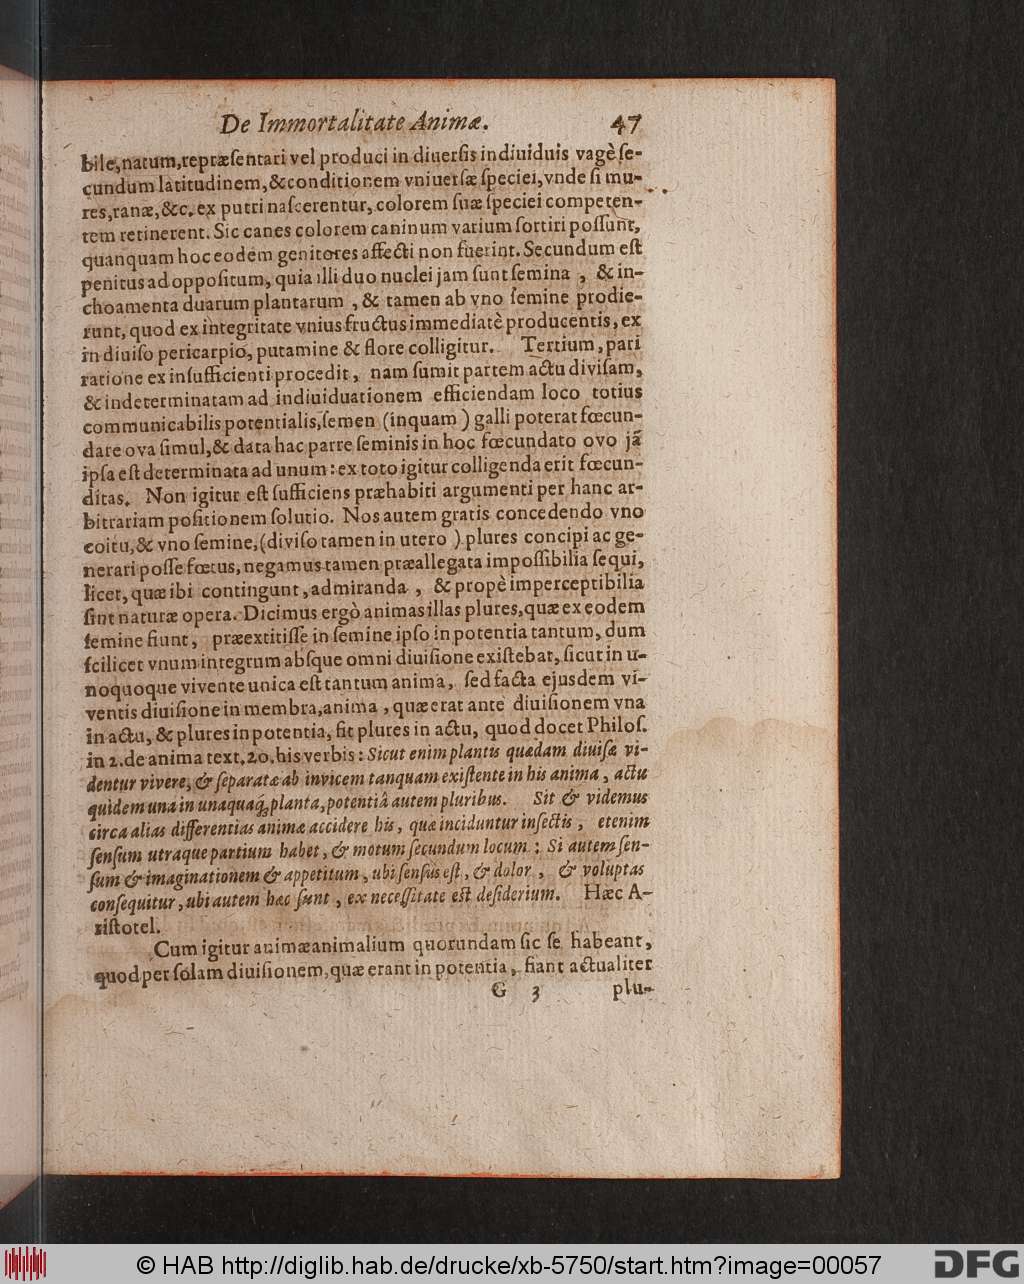 De Immortalitate Animæ. 47
bile, natum, repræſentari vel produci in diuerſis indiuiduis vagè ſe-
cundum latitudinem, & conditionem vniuerſæ ſpeciei, vnde ſi mu-
res, ranæ, &c. ex putri naſcerentur, colorem ſuæ ſpeciei competen-
tem retinerent. Sic canes colorem caninum varium ſortiri poſſunt,
quanquam hoc eodem genitores affecti non fuerint. Secundum eſt
penitus ad oppoſitum, quia illi duo nuclei jam ſunt ſemina , & in-
choamenta duarum plantarum , & tamen ab vno ſemine prodie-
runt, quod ex integritate vnius fructus immediatè producentis, ex
indiuiſo pericarpio, putamine & flore colligitur. Tertium, pari
ratione ex inſufficienti procedit, nam ſumit partem actu diviſam,
& indeterminatam ad indiuiduationem efficiendam loco totius
communicabilis potentialis, ſemen (inquam ) galli poterat fœcun-
dare ova ſimul, & data hac parte ſeminis in hoc fœcundato ovo jã
ipſa eſt determinata ad unum: ex toto igitur colligenda erit fœcun-
ditas. Non igitur eſt ſufficiens præhabiti argumenti per hanc ar-
bitrariam poſitionem ſolutio. Nos autem gratis concedendo vno
coitu, & vno ſemine, (diviſo tamen in utero ) plures concipi ac ge-
nerari poſſe fœtus, negamus tamen præallegata impoſſibilia ſequi,
licet, quæ ibi contingunt, admiranda , & propè imperceptibilia
ſint naturæ opera. Dicimus ergò animas illas plures, quæ ex eodem
ſemine fiunt, præextitiſſe in ſemine ipſo in potentia tantum, dum
ſcilicet vnum integrum abſque omni diuiſione exiſtebat, ſicut in u-
noquoque vivente unica eſt tantum anima, ſed facta ejusdem vi-
ventis diuiſione in membra, anima , quæ erat ante diuiſionem vna
in actu, & plures in potentia, fit plures in actu, quod docet Philoſ.
in 2. de anima text. 20. his verbis: Sicut enim plantis quædam diuiſæ vi-
dentur vivere, & ſeparatæ ab invicem tanquam exiſtente in his anima , actu
quidem una in unaquaq́; planta, potentiâ autem pluribus. Sit & videmus
circa alias differentias animæ accidere his, quæ inciduntur inſectis , etenim
ſenſum utraque partium habet, & motum ſecundum locum : Si autem ſen-
ſum & imaginationem & appetitum, ubi ſenſus eſt, & dolor , & voluptas
conſequitur, ubi autem hæc ſunt , ex neceſſitate eſt deſiderium. Hæc A-
riſtotel.
Cum igitur animæ animalium quorundam ſic ſe habeant,
quod per ſolam diuiſionem, quæ erant in potentia, fiant actualiter
G 3 plu-
© HAB http://diglib.hab.de/drucke/xb-5750/start.htm?image=00057
DFG